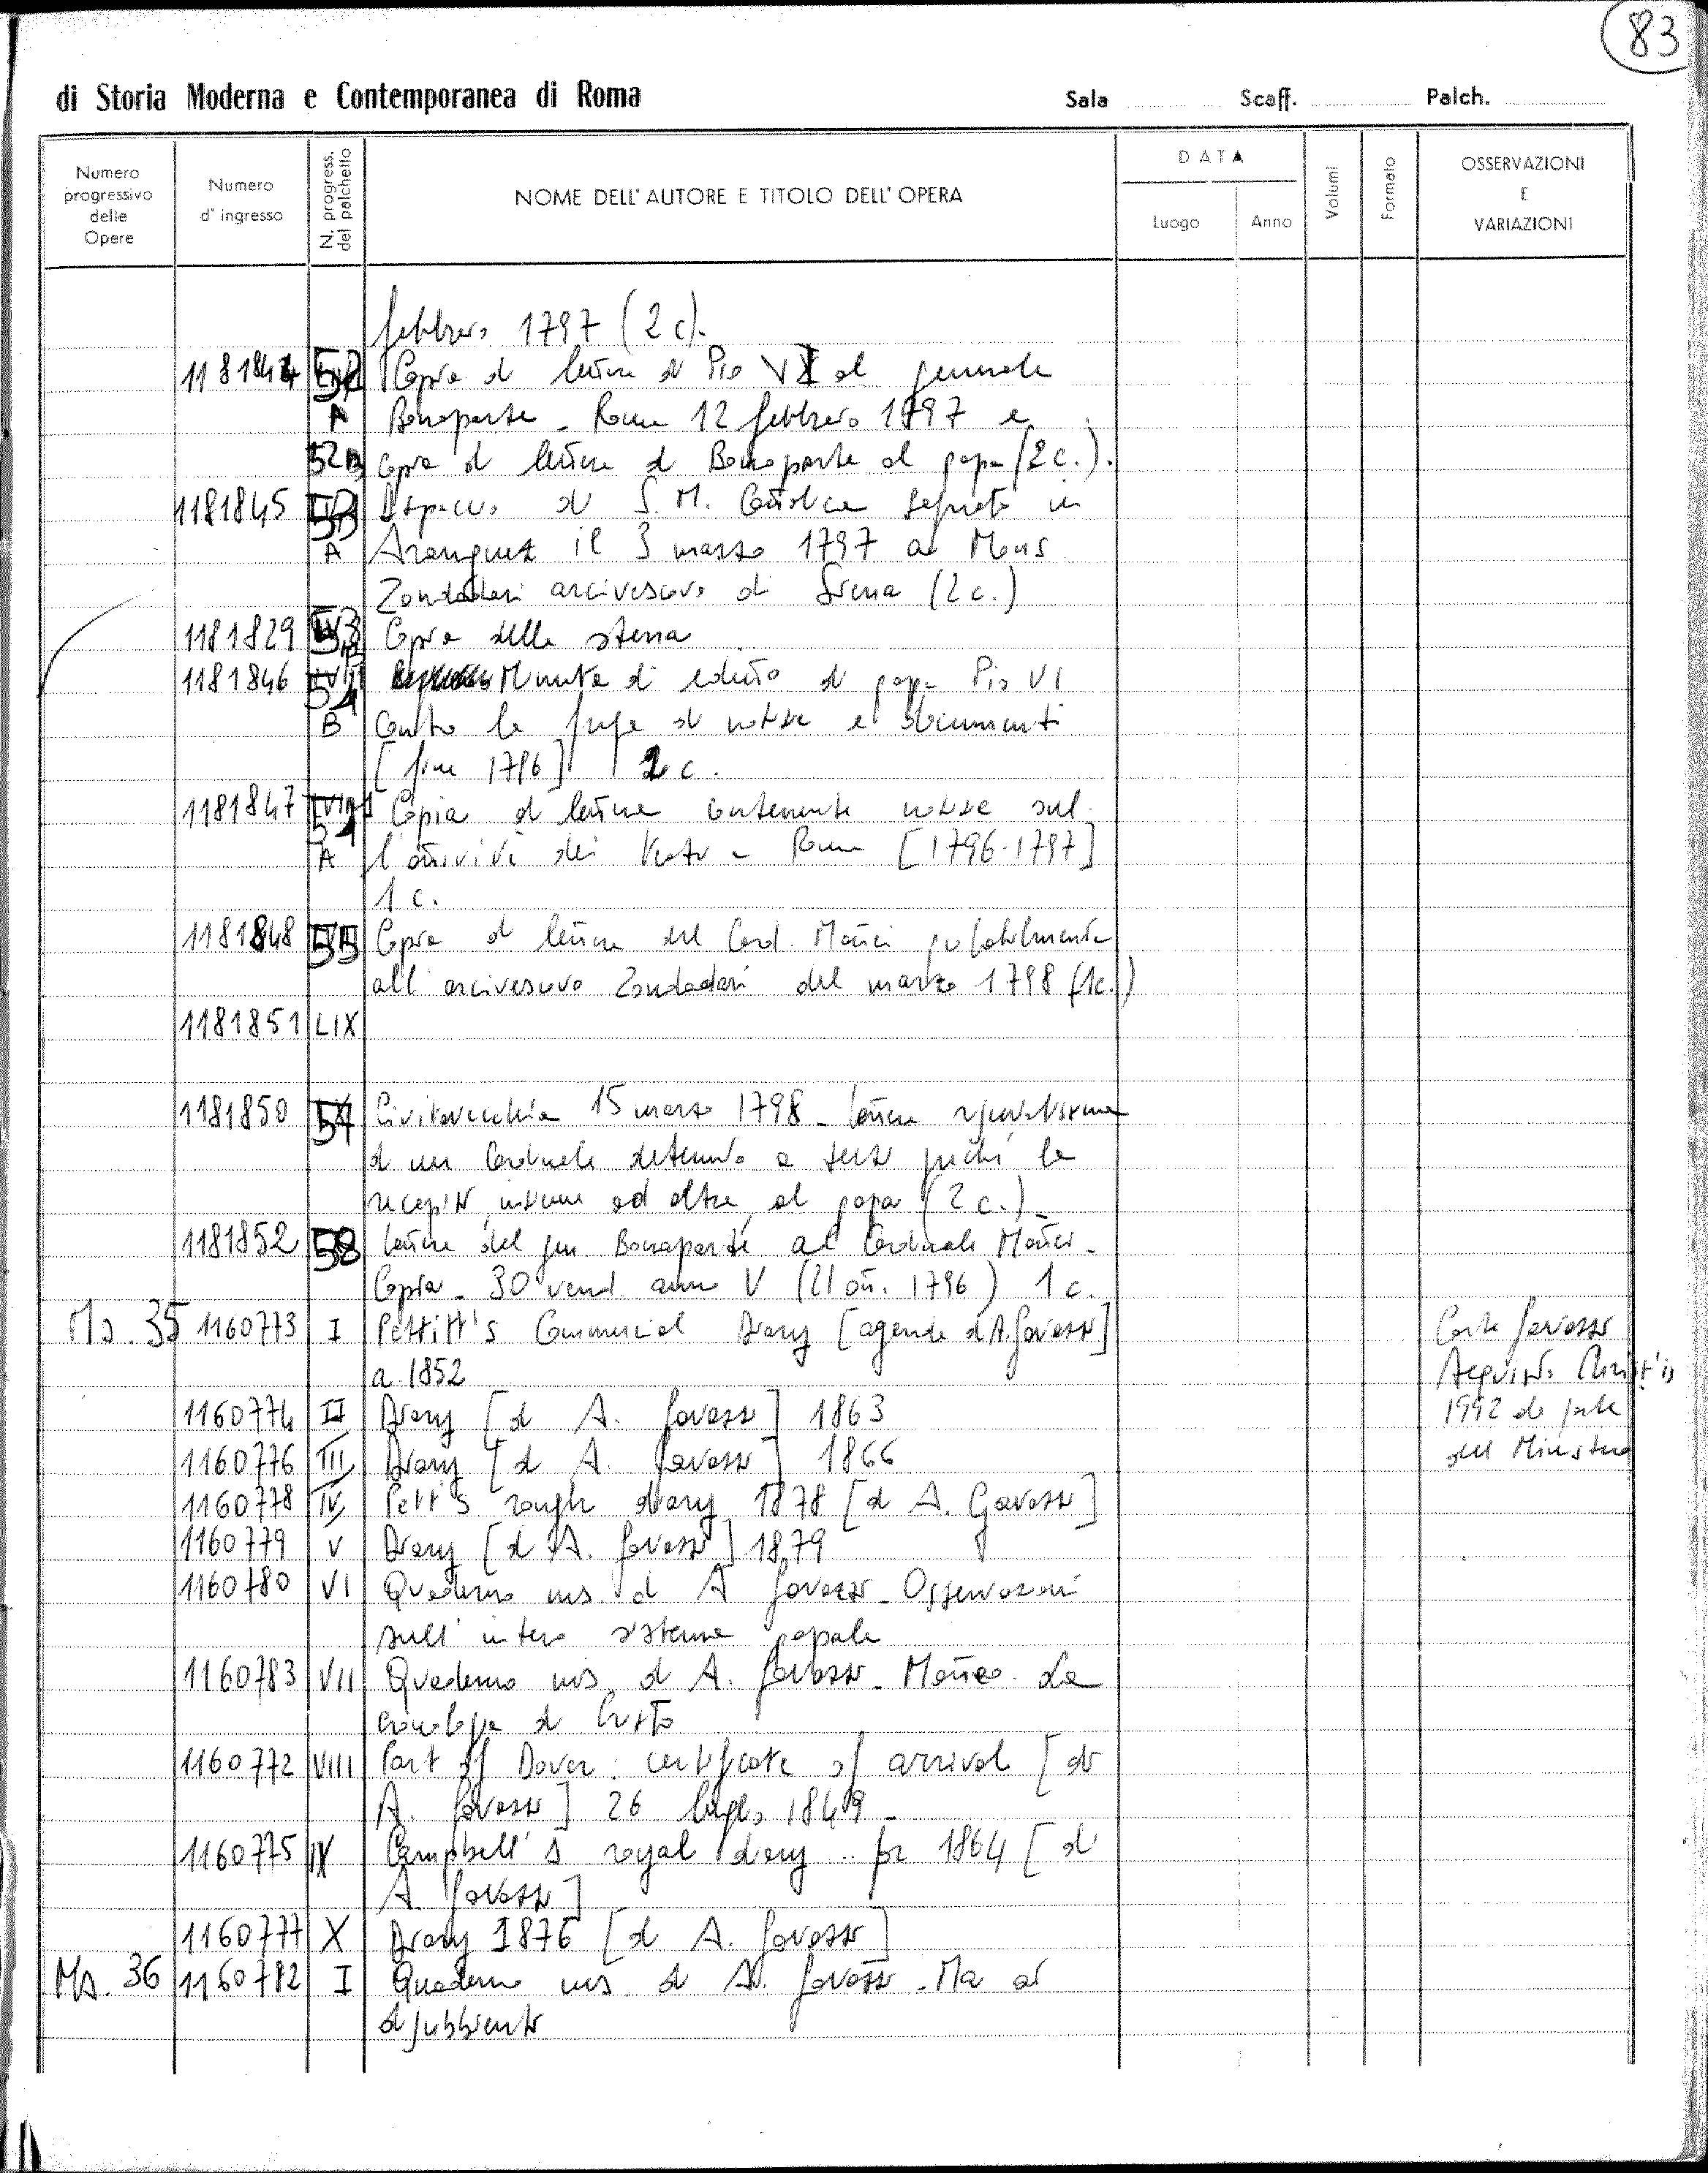 83
di Storia Moderna e Contemporanea di Roma Sala Scaff. Palch.
Numero progressivo delle Opere
Numero d'ingresso
N. progress. del palchetto
NOME DELL'AUTORE E TITOLO DELL'OPERA
DATA
Luogo
Anno
Volumi
Formato
OSSERVAZIONI E VARIAZIONI
febbraio 1797 (2 c).
1181844 52 Copia di lettera di Pio VI al generale
A Bonaparte - Roma 12 febbraio 1797 e
52B copia di lettera di Bonaparte al papa (2 c.).
1181845 53 Dispaccio di S. M. Cattolica segnato in
A Aranquez il 3 marzo 1797 a Mons
Zondadari arcivescovo di Siena (2 c.)
1181829 53 Copia della stessa
1181846 51 Minuta di editto di papa Pio VI
B contro la fuga di notizie e documenti
[fine 1796] 2 c.
1181847 51 Copia di lettera contenente notizie sul
A l'attività dei teatri a Roma [1796-1797]
1 c.
1181848 55 Copia di lettera del Card. Mattei probabilmente
all'arcivescovo Zondadari del marzo 1798 (1c.)
1181851 LIX
1181850 57 Civitavecchia 15 marzo 1798 - lettera
di un Cardinale detenuto a terzi perché la
recapiti, insieme ad altre, al papa (2 c.)
1181852 58 lettera del gen Bonaparte al Cardinale Mattei -
Copia - 30 vend. anno V (21 ott. 1796) 1 c.
Ms. 35 1160773 I Pettitt's Commercial Diary [agenda di A. Gavazzi] Carte Gavazzi
a. 1852 Acquisto
1160774 II Diary [di A. Gavazzi] 1863 1992 da parte
1160776 III Diary [di A. Gavazzi] 1866 del Ministero
1160778 IV Pett's rough diary 1878 [di A. Gavazzi]
1160779 V Diary [di A. Gavazzi] 1879
1160780 VI Quaderno ms. di A Gavazzi - Osservazioni
sull'intero sistema papale
1160783 VII Quaderno ms. di A. Gavazzi - Matteo. La
genealogia di Cristo
1160772 VIII Port of Dover: certificate of arrival [di
A. Gavazzi] 26 luglio 1849 -
1160775 IX Campbell's royal diary .. for 1864 [di
A. Gavazzi]
1160777 X Diary 1876 [di A. Gavazzi]
Ms. 36 1160782 I Quaderno ms. di A. Gavazzi - Ma ai